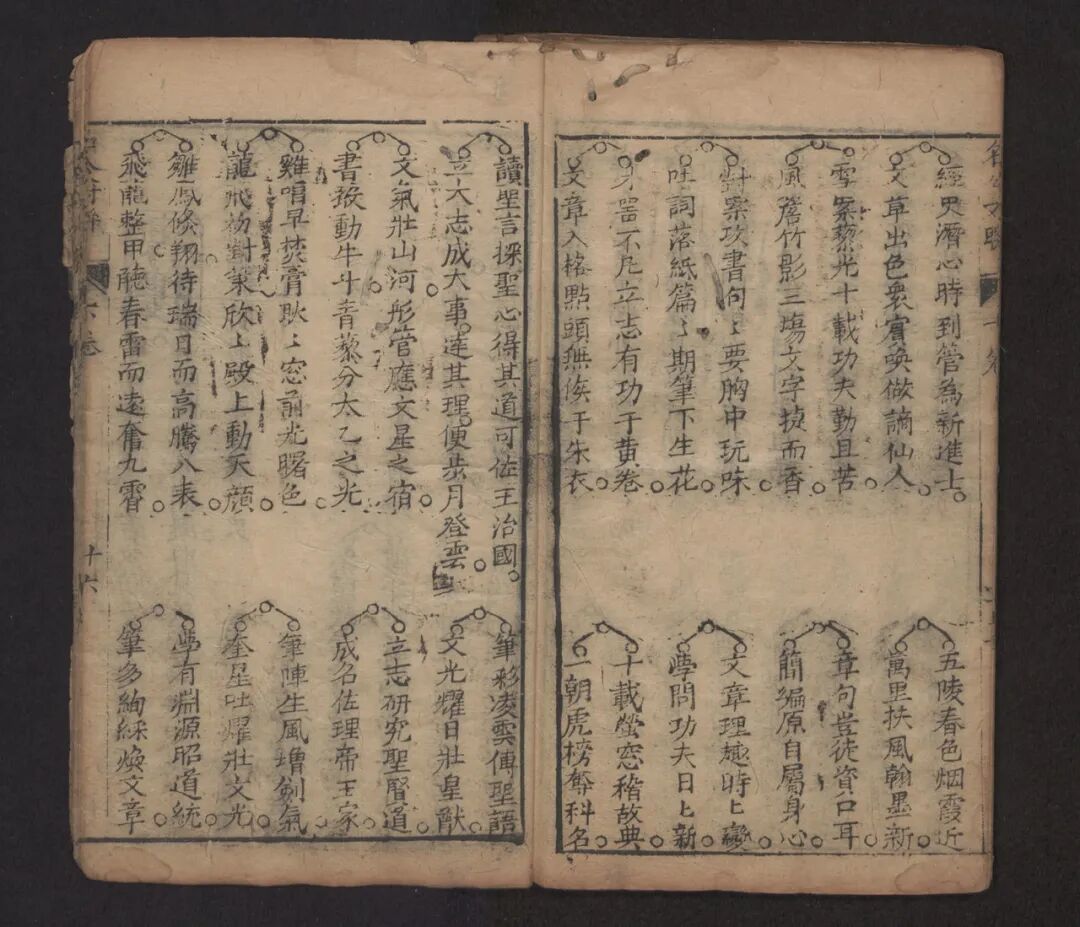 經史潛心時到管為新進上
文草出色衆實喚做謫仙人
雪案藜光十載功夫勤且苦
風簷竹影三塲文字掞而香
對案攻書句〻要胸中玩味
吐詞落紙篇〻期筆下生花
才器不凡立志有功于黄卷
文章入格點頭無俟于朱衣
五陵春色烟霞近
萬里扶風翰墨新
章句豈徒資口耳
簡編原自屬身心
文章理趣時〻變
學問功夫日〻新
十載螢窓稽故典
一朝虎榜奪科名
讀聖言探聖心得其道可佐王治國
立大志成大事達其理便步月登雲
文氣壯山河彤管應文星之宿
書聲動牛斗青藜分太乙之光
雞唱早焚膏耿〻窓前光曙色
龍飛初對策欣〻殿上動天顔
雛鳳翛翔待瑞日而高騰八表
飛龍整甲聽春雷而遠奮九霄
筆彩凌雲傳聖語
文光耀日壯皇猷
立志研究聖賢道
成名佐理帝王家
筆陣生風增劍氣
奎星吐耀壯文光
學有淵源昭道統
筆多絢綵煥文章
六卷
十六